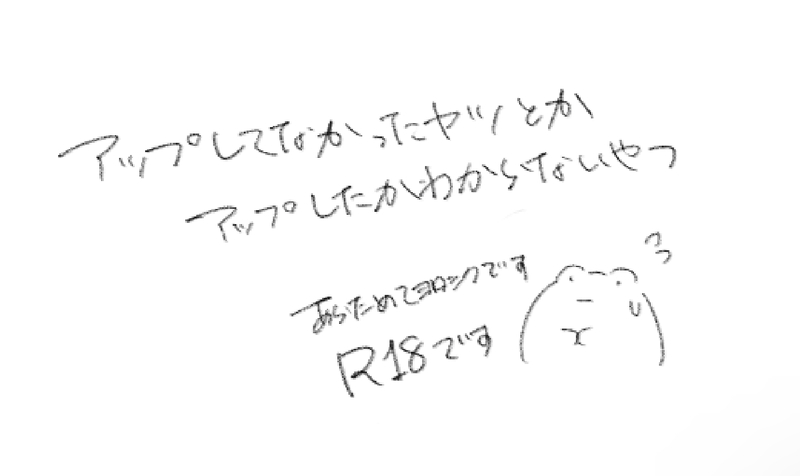 アップしてなかったヤツとか
アップしたかわからないやつ
あらためてヨロックです
R18です